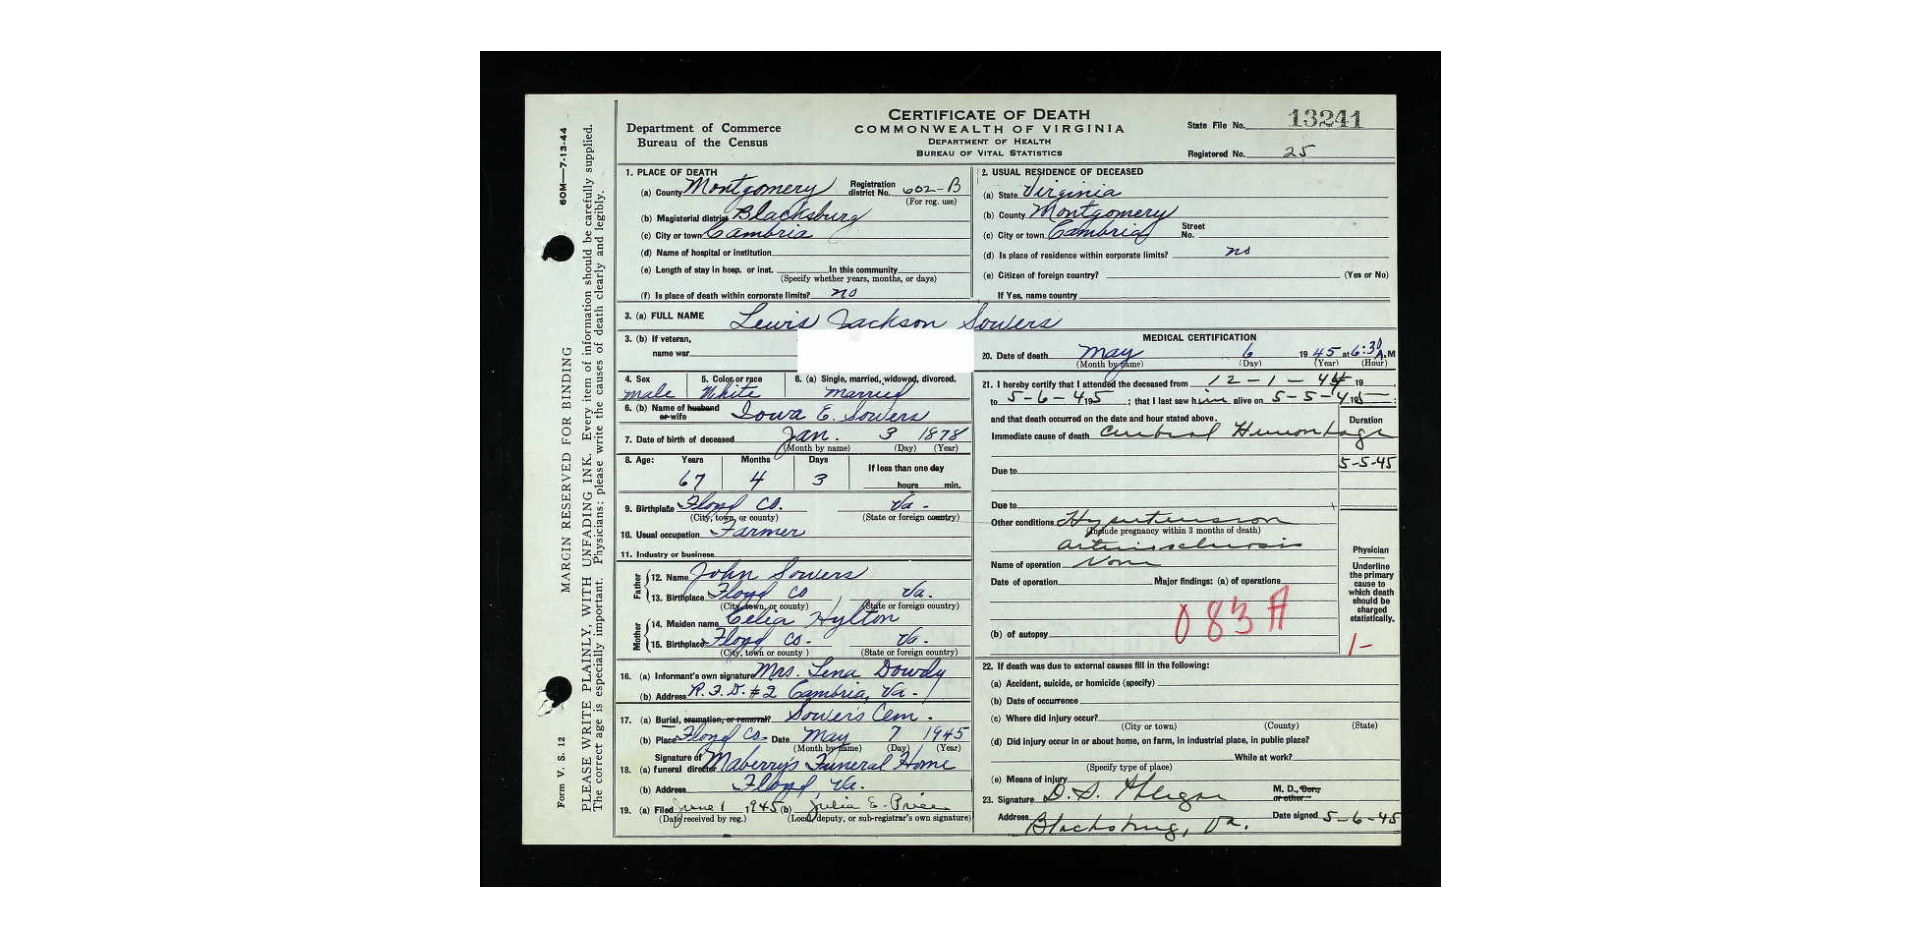 60M—7-13-44
MARGIN RESERVED FOR BINDING
PLEASE WRITE PLAINLY, WITH UNFADING INK. Every item of information should be carefully supplied.
The correct age is especially important. Physicians: please write the causes of death clearly and legibly.
Form V. S. 12
Department of Commerce
Bureau of the Census
CERTIFICATE OF DEATH
COMMONWEALTH OF VIRGINIA
DEPARTMENT OF HEALTH
BUREAU OF VITAL STATISTICS
State File No. 13241
Registered No. 25
1. PLACE OF DEATH
(a) County Montgomery Registration district No. 602-B
(For reg. use)
(b) Magisterial district Blacksburg
(c) City or town Cambria
(d) Name of hospital or institution
(e) Length of stay in hosp. or inst. In this community
(Specify whether years, months, or days)
(f) Is place of death within corporate limits? no
2. USUAL RESIDENCE OF DECEASED
(a) State Virginia
(b) County Montgomery
(c) City or town Cambria Street No.
(d) Is place of residence within corporate limits? no
(e) Citizen of foreign country? (Yes or No)
If Yes, name country
3. (a) FULL NAME Lewis Jackson Sowers
3. (b) If veteran,
name war
4. Sex 5. Color or race 6. (a) Single, married, widowed, divorced.
male White married
6. (b) Name of husband or wife Iowa E. Sowers
7. Date of birth of deceased Jan. 3 1878
(Month by name) (Day) (Year)
8. Age: Years Months Days If less than one day
67 4 3
hours min.
9. Birthplace Floyd Co. Va.
(City, town, or county) (State or foreign country)
10. Usual occupation Farmer
11. Industry or business
Father
12. Name John Sowers
13. Birthplace Floyd Co Va.
(City, town, or county) (State or foreign country)
Mother
14. Maiden name Celia Hylton
15. Birthplace Floyd Co. Va.
(City, town or county) (State or foreign country)
16. (a) Informant's own signature Mrs. Lena Dowdy
(b) Address R.F.D. #2 Cambria, Va.
17. (a) Burial, cremation, or removal? Sowers Cem.
(b) Place Floyd Co. Date May 7 1945
(Month by name) (Day) (Year)
18. (a) Signature of funeral director Maberry's Funeral Home
(b) Address Floyd, Va.
19. (a) Filed June 1 1945 (b) Julia E. Price
(Date received by reg.) (Local, deputy, or sub-registrar's own signature)
MEDICAL CERTIFICATION
20. Date of death May 6 1945 at 6:30 A.M
(Month by name) (Day) (Year) (Hour)
21. I hereby certify that I attended the deceased from 12-1-44 19
to 5-6-45 19; that I last saw him alive on 5-5-45 19;
and that death occurred on the date and hour stated above.
Duration
Immediate cause of death Cerebral Hemorrhage
5-5-45
Due to
Due to
Other conditions Hypertension
(Include pregnancy within 3 months of death)
arteriosclerosis
Name of operation None
Date of operation Major findings: (a) of operations
083A
(b) of autopsy
Physician
Underline the primary cause to which death should be charged statistically.
1-
22. If death was due to external causes fill in the following:
(a) Accident, suicide, or homicide (specify)
(b) Date of occurrence
(c) Where did injury occur?
(City or town) (County) (State)
(d) Did injury occur in or about home, on farm, in industrial place, in public place?
While at work?
(Specify type of place)
(e) Means of injury
23. Signature D.S. M. D., or other
Address Blacksburg, Va. Date signed 5-6-45